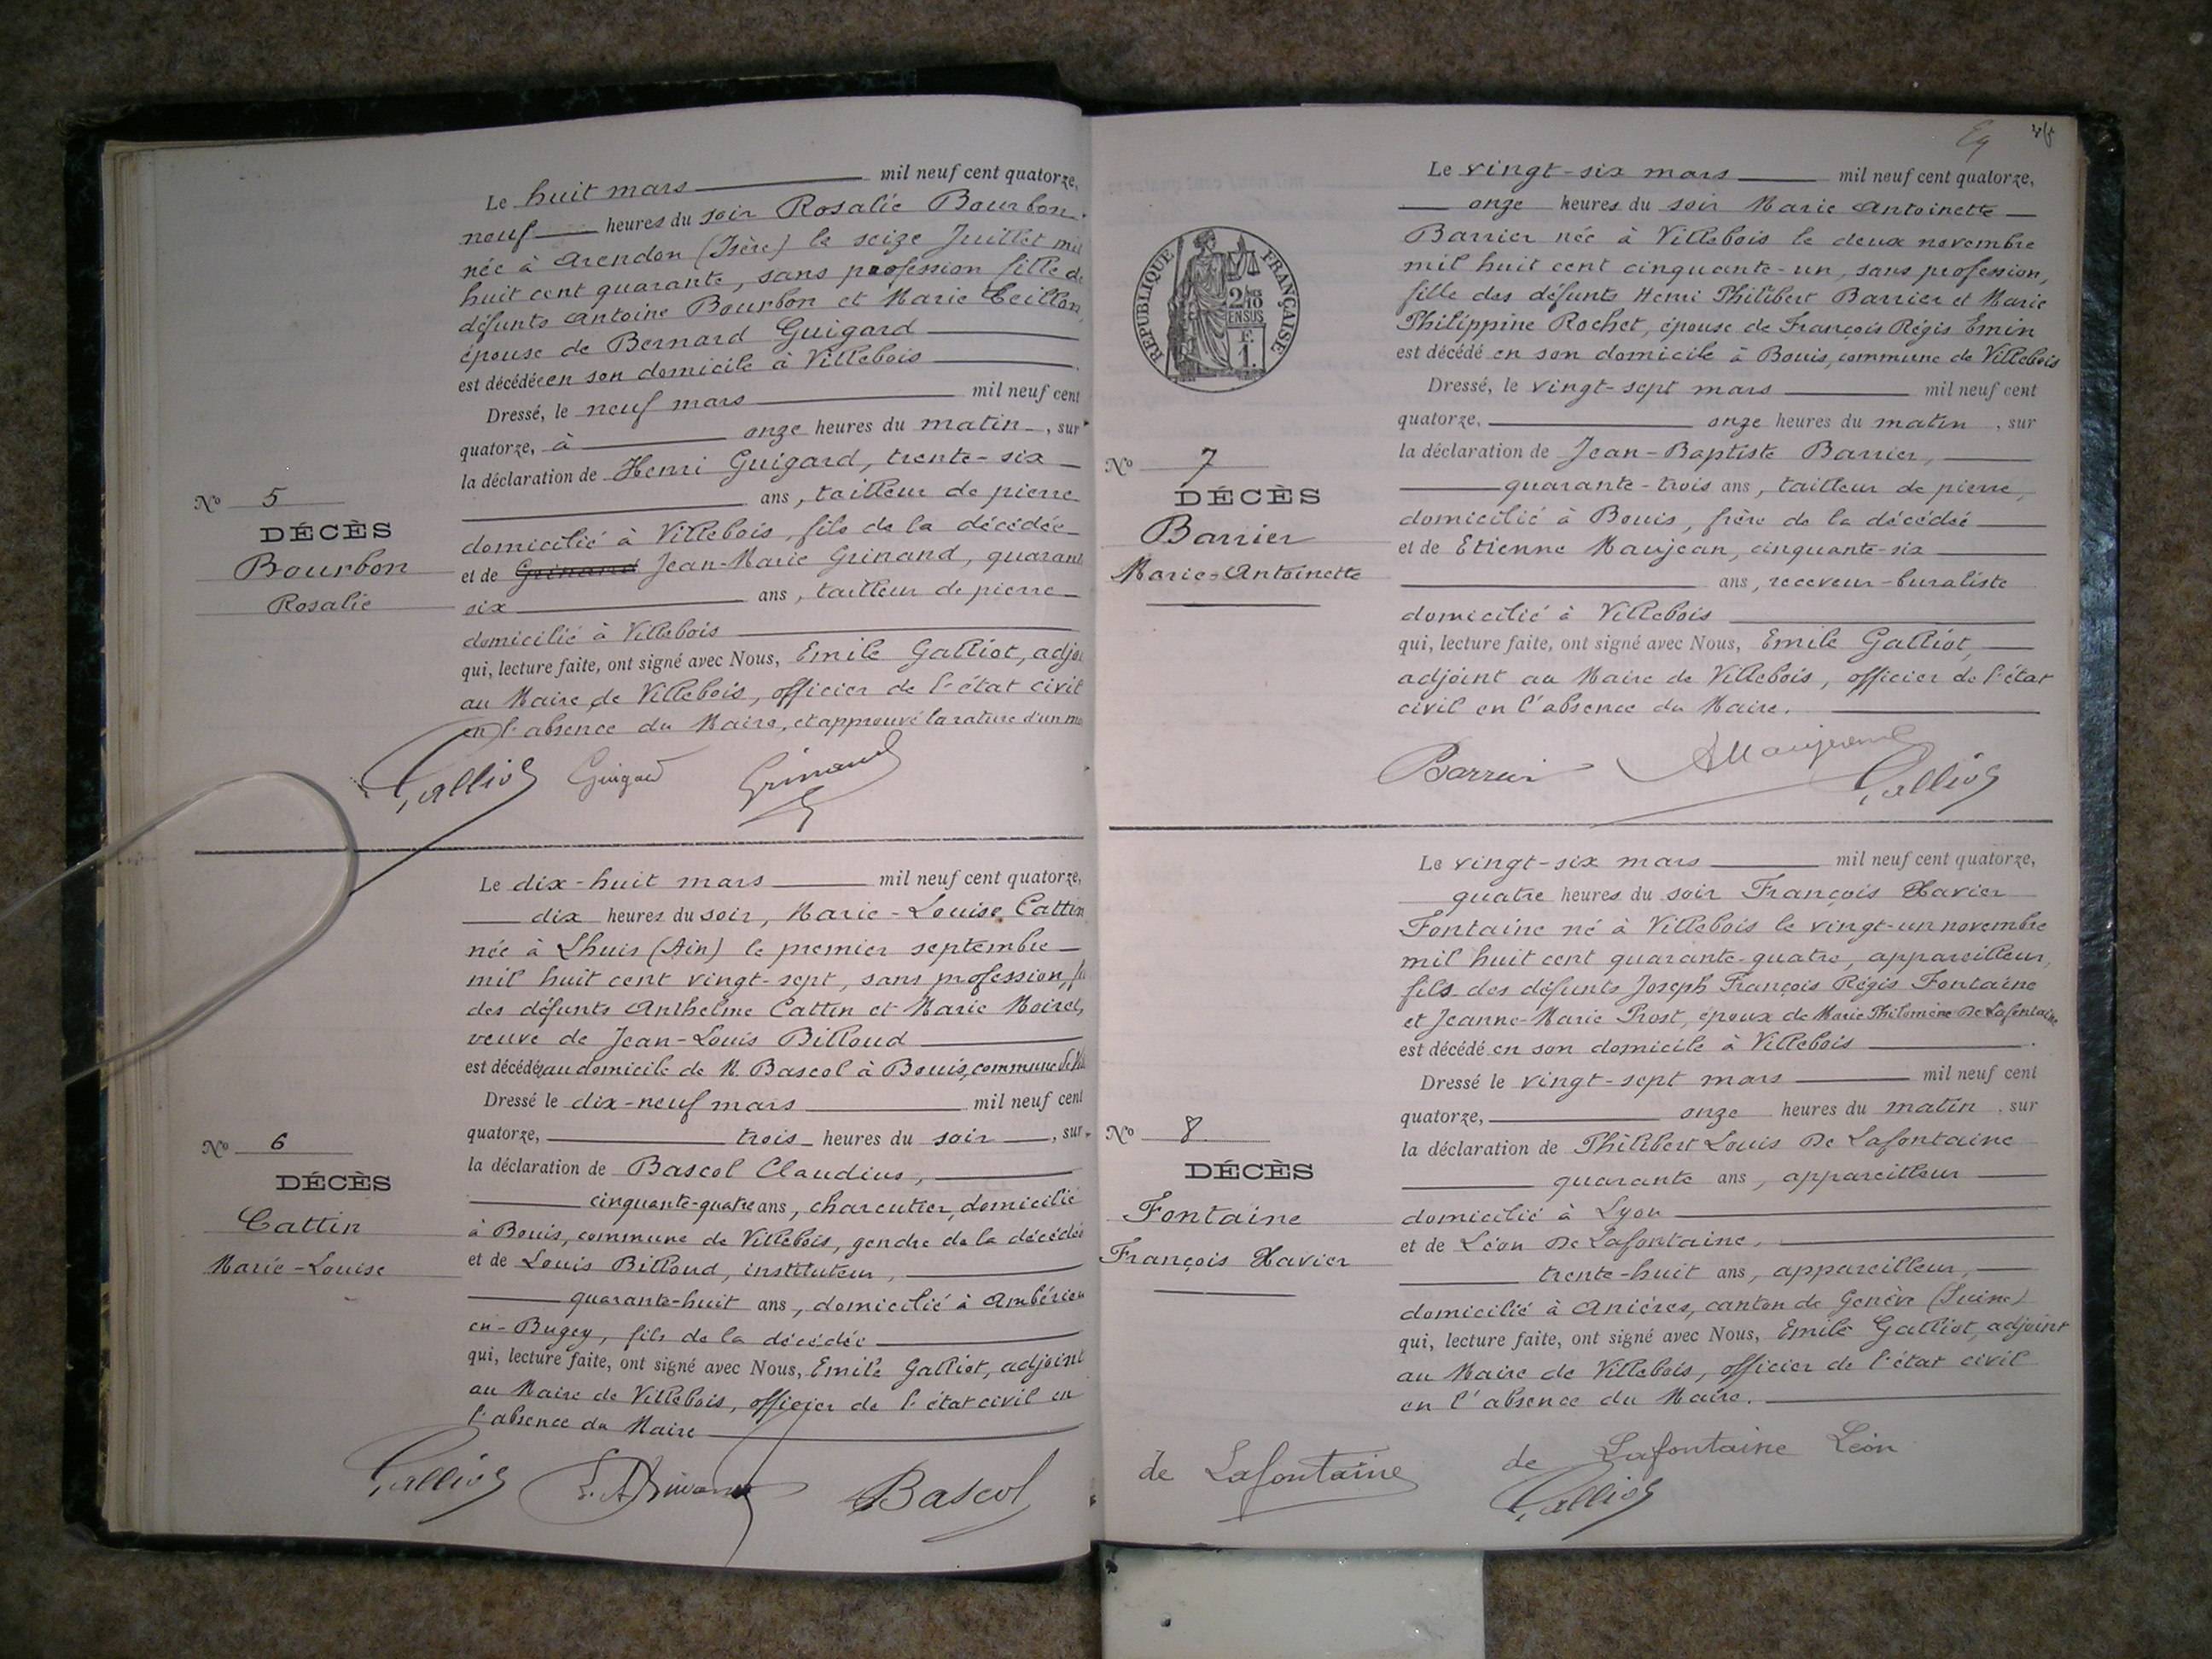 Le huit mars mil neuf cent quatorze,
neuf heures du soir Rosalie Bourbon
née à Arendon (Isère) le seize Juillet mil
huit cent quarante, sans profession fille de
défunts Antoine Bourbon et Marie Teillon,
épouse de Bernard Guigard
est décédée en son domicile à Villebois
Dressé, le neuf mars mil neuf cent
quatorze, à onze heures du matin, sur
la déclaration de Henri Guigard, trente-six
ans, tailleur de pierre
N° 5
DÉCÈS
Bourbon
Rosalie
domicilié à Villebois, fils de la décédée
et de Grinand Jean-Marie Grinand, quarante
six ans, tailleur de pierre
domicilié à Villebois
qui, lecture faite, ont signé avec Nous, Emile Galliot, adjoi
au Maire de Villebois, officier de l'état civil
en l'absence du Maire, et approuvé la rature d'un mo
Galliot Guigard Grinand
Le dix-huit mars mil neuf cent quatorze,
dix heures du soir, Marie-Louise Cattin
née à Lhuis (Ain) le premier septembre
mil huit cent vingt-sept, sans profession, fi
des défunts Anthelme Cattin et Marie Moirel,
veuve de Jean-Louis Billoud
est décédée au domicile de M. Bascol à Bouis, commune de Vil
Dressé le dix-neuf mars mil neuf cent
quatorze, trois heures du soir, sur
la déclaration de Bascol Claudius,
cinquante-quatre ans, charcutier, domicilié
à Bouis, commune de Villebois, gendre de la décédée
et de Louis Billoud, instituteur,
quarante-huit ans, domicilié à Ambérieu
en-Bugey, fils de la décédée
qui, lecture faite, ont signé avec Nous, Emile Galliot, adjoint
au Maire de Villebois, officier de l'état civil en
l'absence du Maire
N° 6
DÉCÈS
Cattin
Marie-Louise
Galliot Bascol
Le vingt-six mars mil neuf cent quatorze,
onze heures du soir Marie Antoinette
Barrier née à Villebois le deux novembre
mil huit cent cinquante-un, sans profession,
fille des défunts Henri Philibert Barrier et Marie
Philippine Rochet, épouse de François Régis Emin
est décédé en son domicile à Bouis, commune de Villebois
Dressé, le vingt-sept mars mil neuf cent
quatorze, onze heures du matin, sur
la déclaration de Jean-Baptiste Barrier,
quarante-trois ans, tailleur de pierre,
domicilié à Bouis, frère de la décédée
et de Etienne Maujean, cinquante-six
ans, receveur-buraliste
domicilié à Villebois
qui, lecture faite, ont signé avec Nous, Emile Galliot,
adjoint au Maire de Villebois, officier de l'état
civil en l'absence du Maire.
RÉPUBLIQUE FRANÇAISE
2/10
EN SUS
F.
1.
N° 7
DÉCÈS
Barrier
Marie-Antoinette
Barrier Maujean Galliot
Le vingt-six mars mil neuf cent quatorze,
quatre heures du soir François Xavier
Fontaine né à Villebois le vingt-un novembre
mil huit cent quarante-quatre, appareilleur,
fils des défunts Joseph François Régis Fontaine
et Jeanne-Marie Prost, époux de Marie Philomène De Lafontaine
est décédé en son domicile à Villebois
Dressé le vingt-sept mars mil neuf cent
quatorze, onze heures du matin, sur
la déclaration de Philibert Louis De Lafontaine
quarante ans, appareilleur
domicilié à Lyon
et de Léon De Lafontaine,
trente-huit ans, appareilleur,
domicilié à Anières, canton de Genève (Suisse)
qui, lecture faite, ont signé avec Nous, Emile Galliot, adjoint
au Maire de Villebois, officier de l'état civil
en l'absence du Maire.
N° 8
DÉCÈS
Fontaine
François Xavier
de Lafontaine de Lafontaine Léon
Galliot